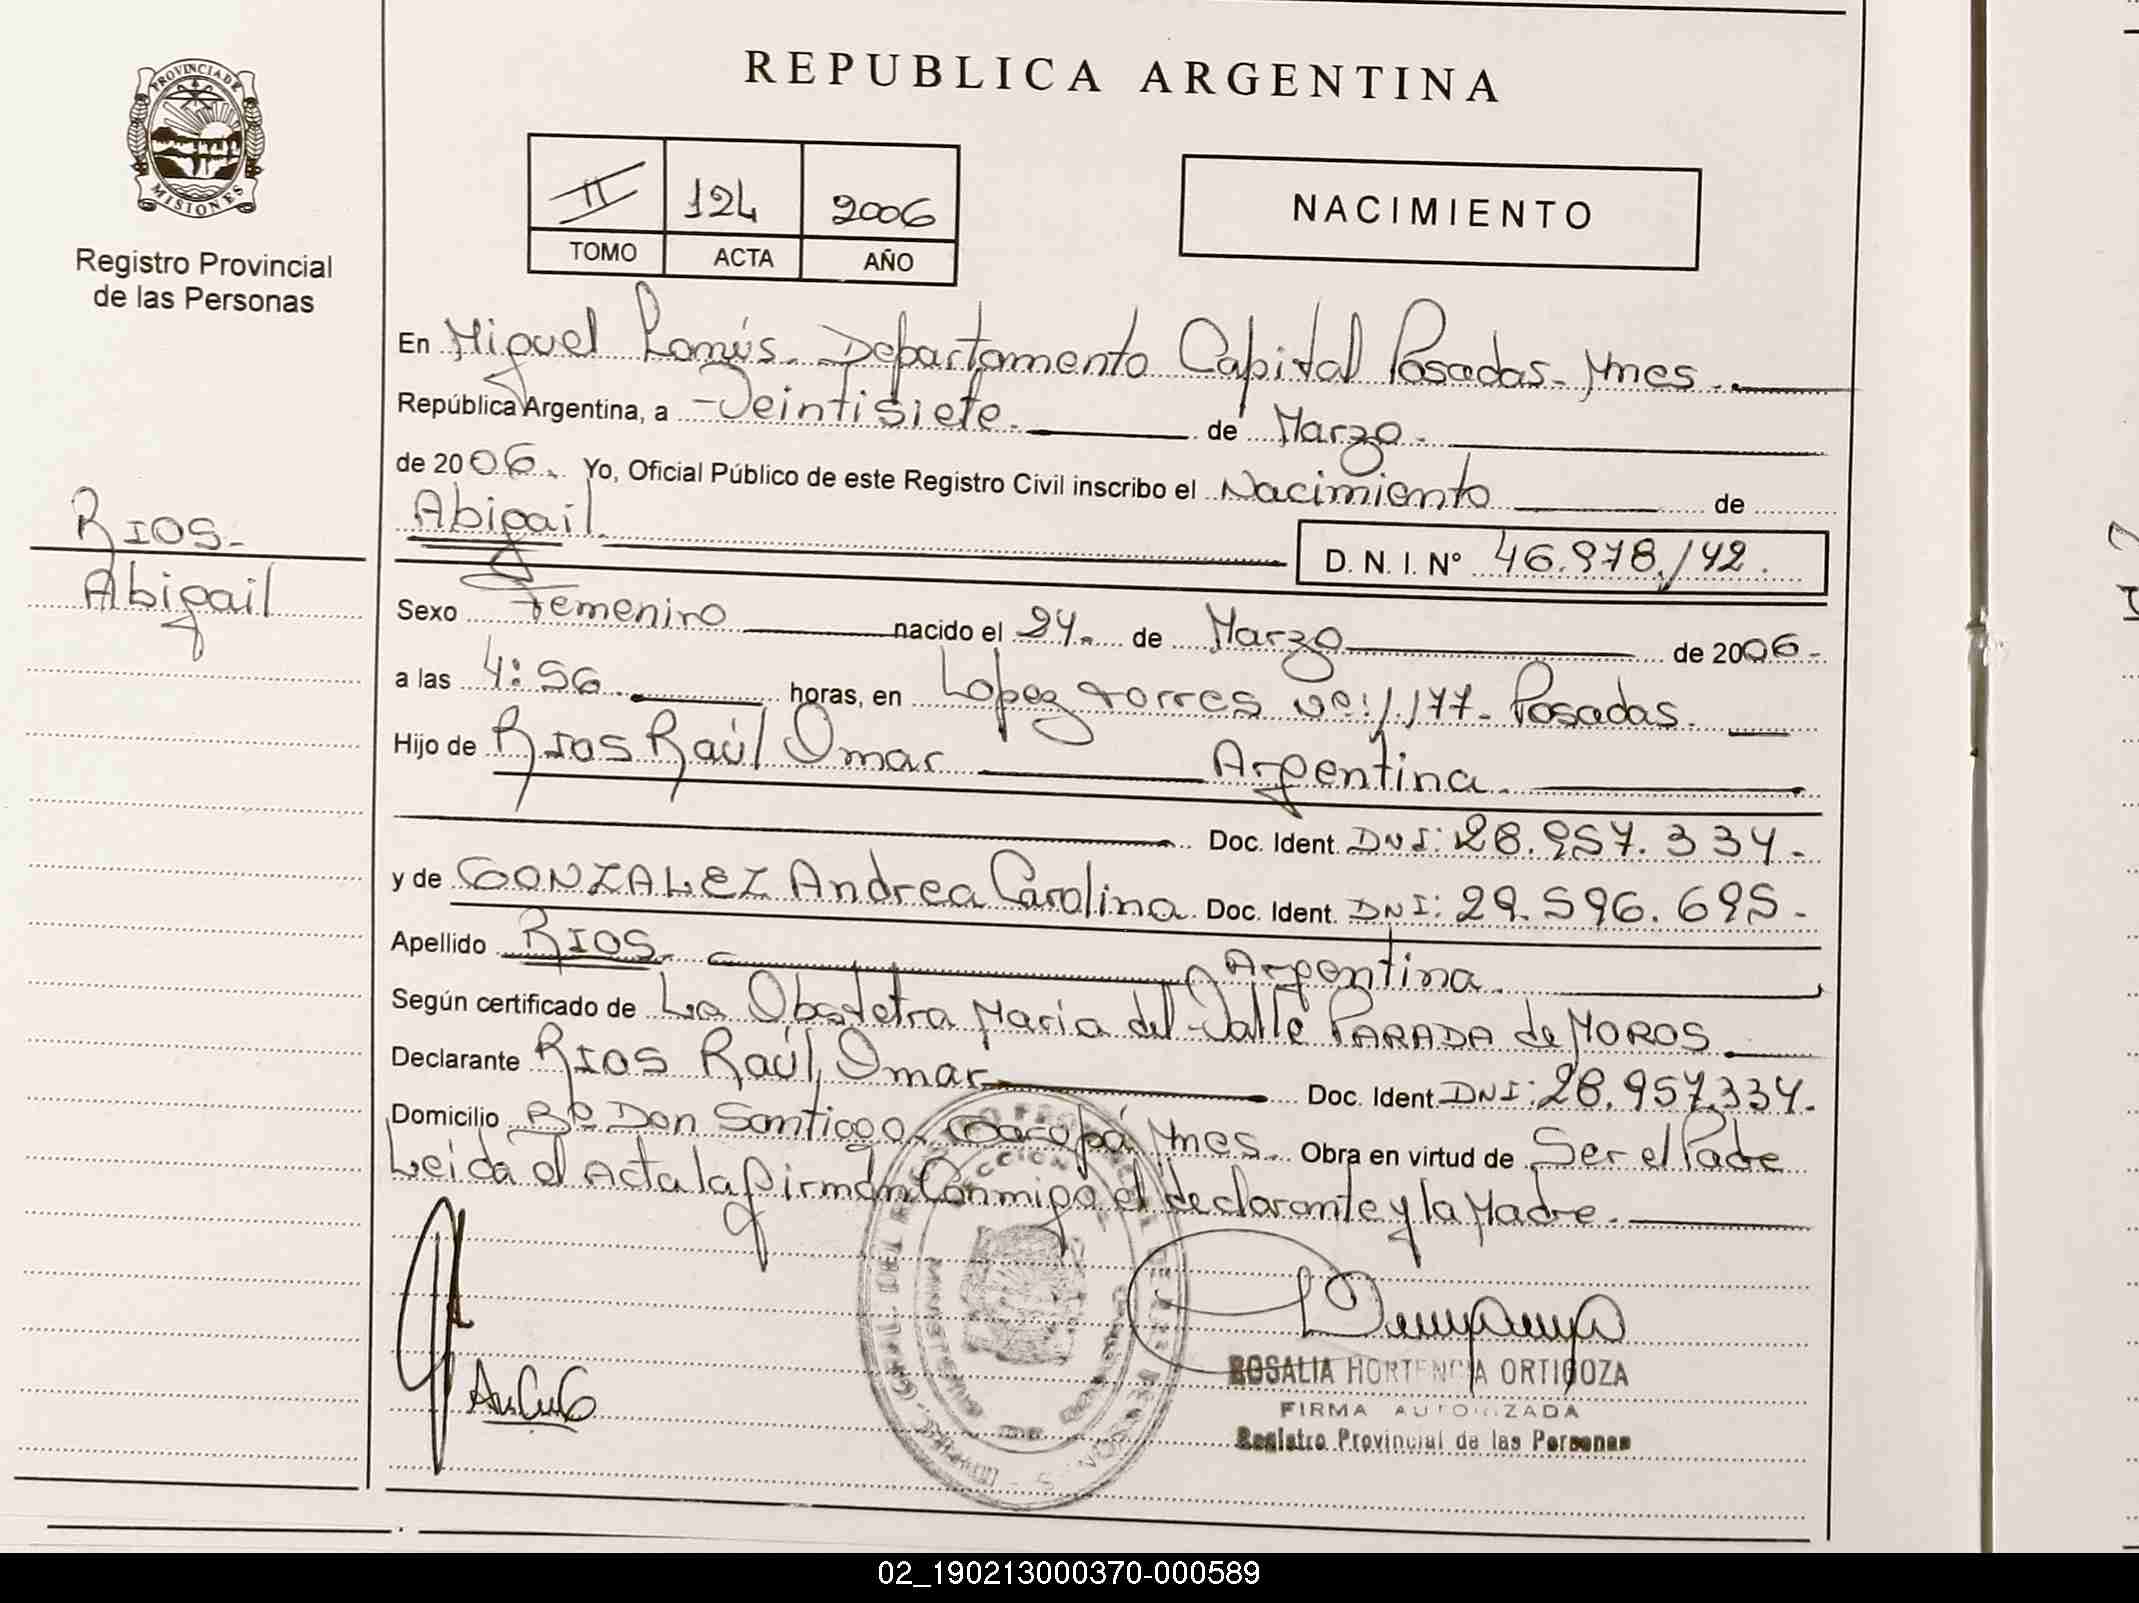 REPUBLICA ARGENTINA
PROVINCIA DE
MISIONES
Registro Provincial
de las Personas
II 124 2006
TOMO ACTA AÑO
NACIMIENTO
En Miguel Lanús. Departamento Capital Posadas - Mnes.
República Argentina, a Veintisiete. de Marzo.
de 2006. Yo, Oficial Público de este Registro Civil inscribo el Nacimiento de
Abigail.
D. N. I. Nº 46.978.142.
RIOS.
Abigail
Sexo Femenino nacido el 24. de Marzo de 2006.
a las 4:56. horas, en Lopez torres Nº: 1.177 - Posadas.
Hijo de RIOS Raúl Omar Argentina.
Doc. Ident. DNI: 28.957.334.
y de GONZALEZ Andrea Carolina Doc. Ident. DNI: 29.596.695.
Apellido RIOS. Argentina.
Según certificado de La Obstetra Maria del Valle PARADA de MOROS
Declarante RIOS Raúl Omar Doc. Ident. DNI: 28.957.334.
Domicilio Bº Don Santiago. Garupá Mnes. Obra en virtud de Ser el Padre
Leida el Acta la firman Conmigo el declarante y la Madre.
ROSALIA HORTENCIA ORTIGOZA
FIRMA AUTORIZADA
Registro Provincial de las Personas
02_190213000370-000589